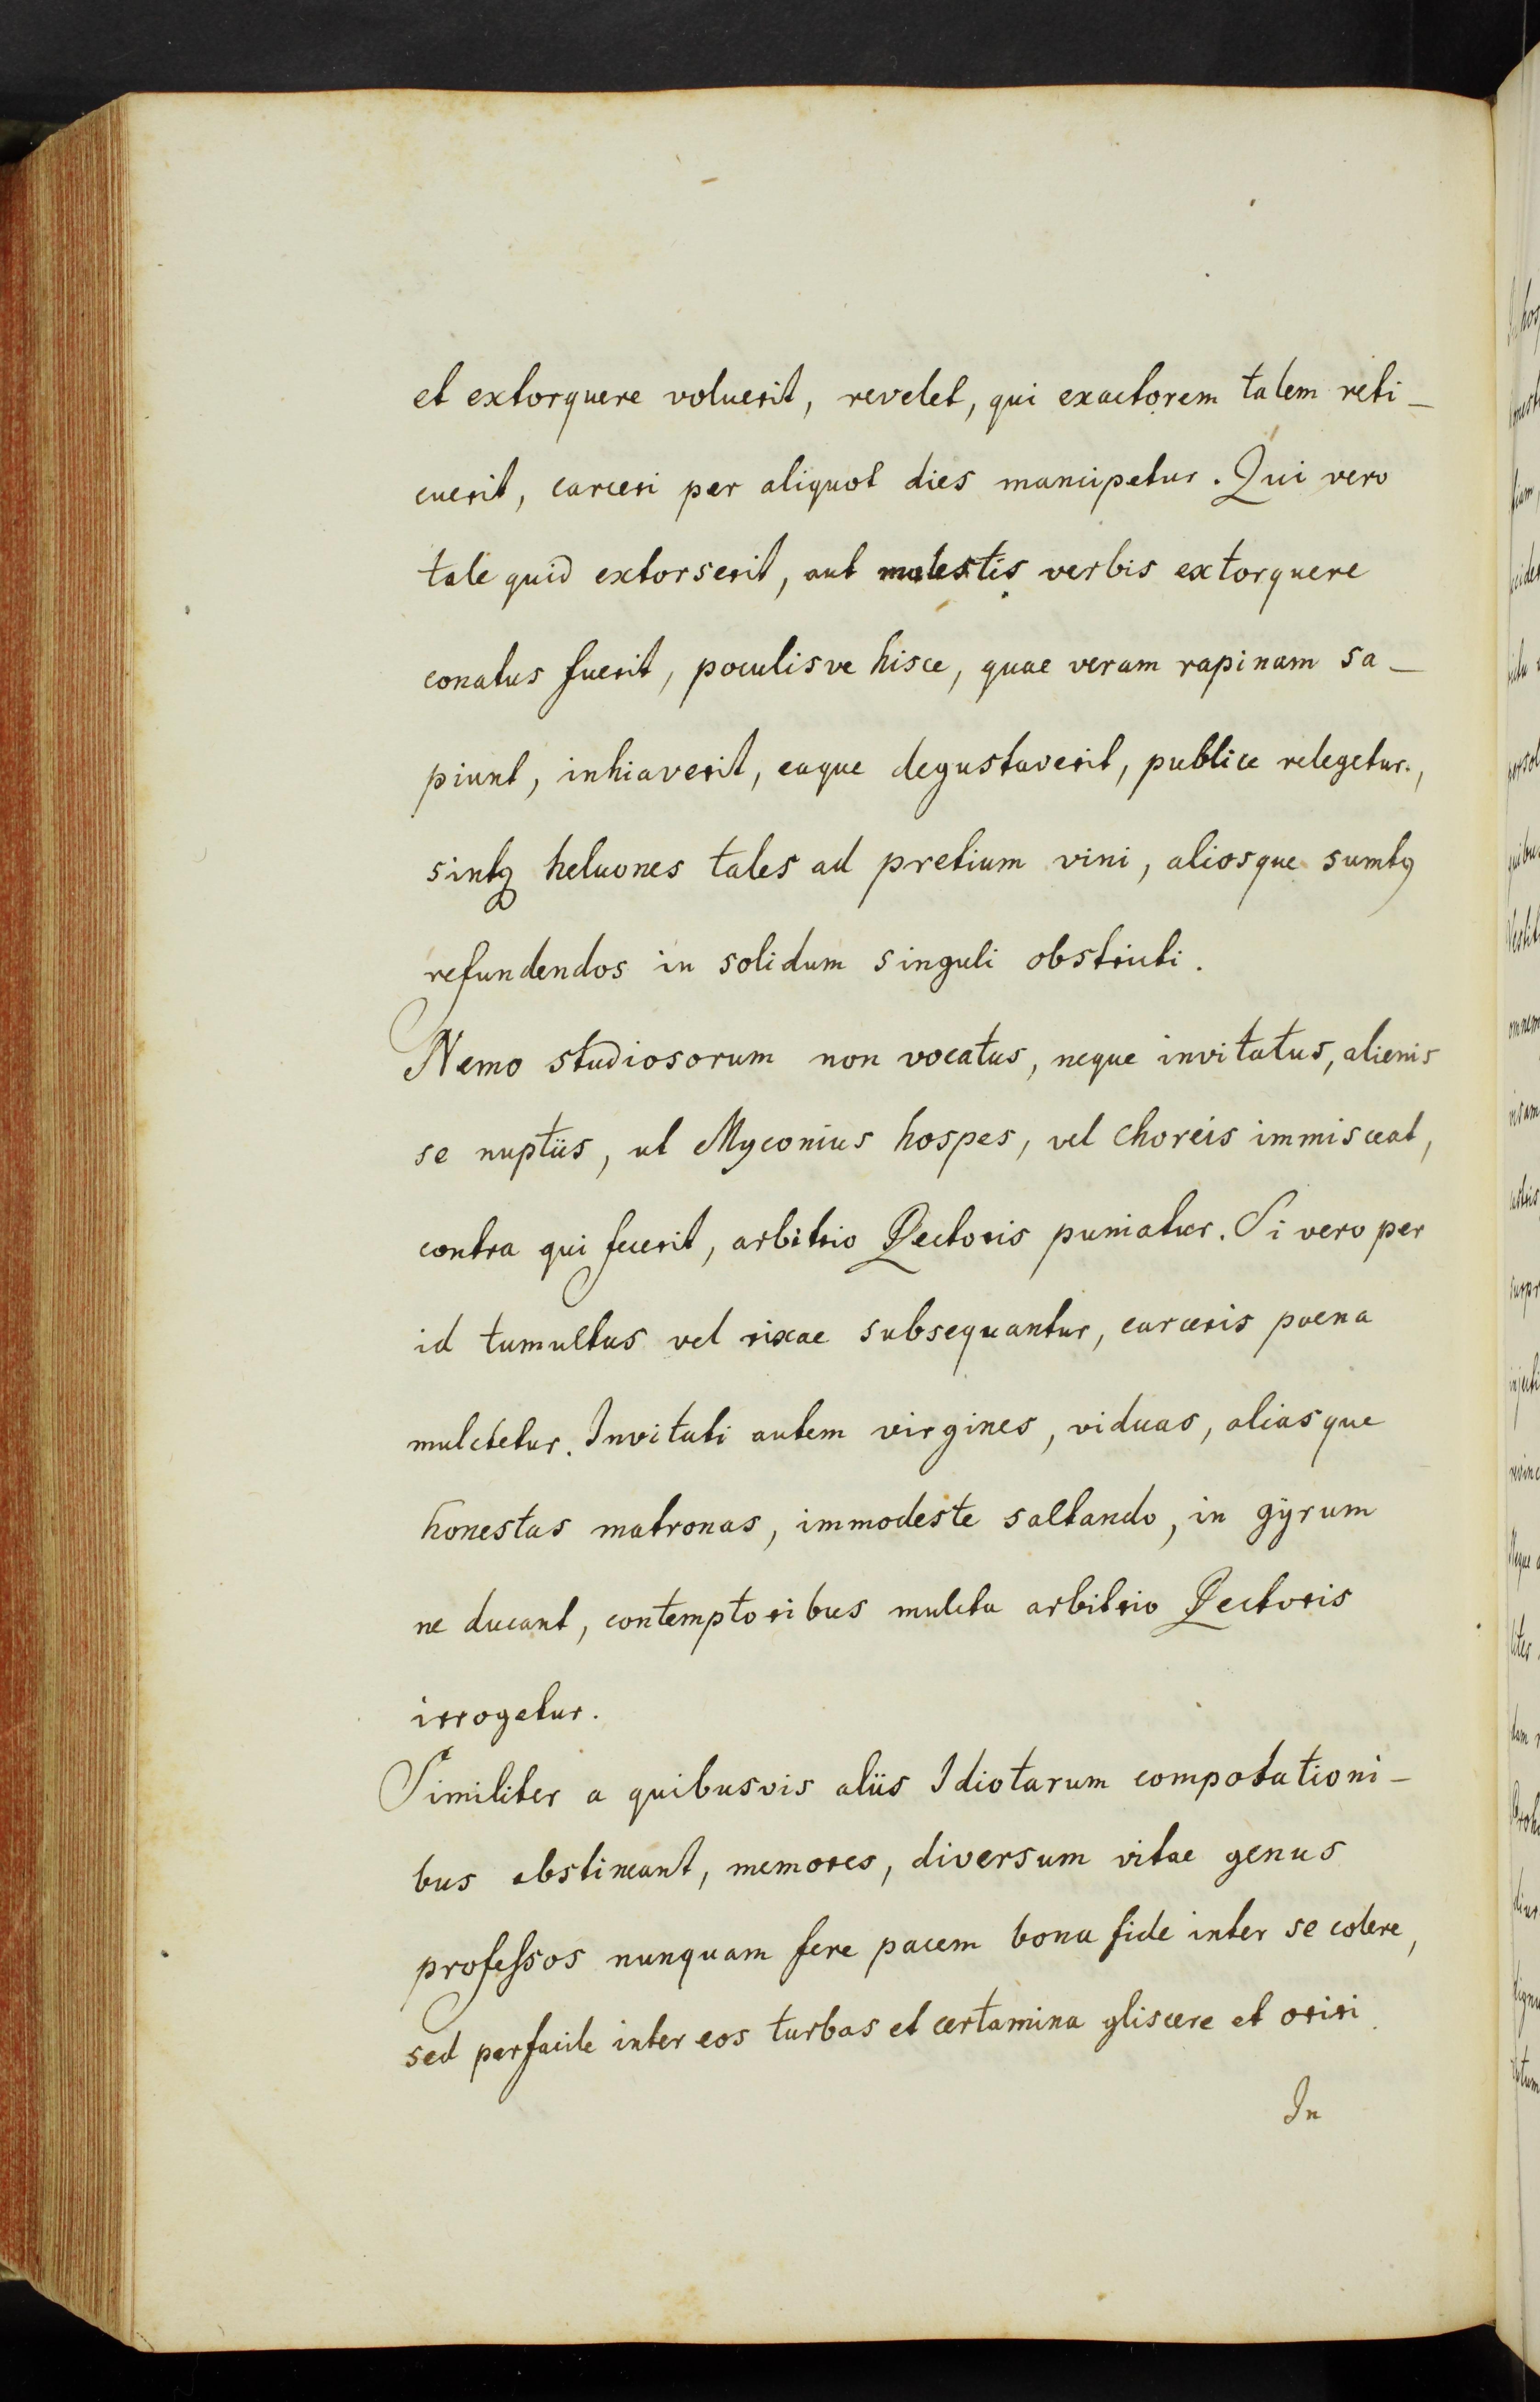 et extorquere voluerit, revelet, qui exactorem talem reti-
cuerit, carceri per aliquot dies mancipetur. Qui vero
tale quid extorserit, aut molestis verbis extorquere
conatus fuerit, poculisve hisce, quae veram rapinam sa-
piunt, inhiaverit, eaque degustaverit, publice relegetur,
sintq heluones tales ad pretium vini, aliosque sumtq
refundendos in solidum singuli obstricti.
Nemo studiosorum non vocatus, neque invitatus, alienis
se nuptiis, ut Myconius hospes, vel choreis immisceat,
contra qui fecerit, arbitrio Rectoris puniatur. Si vero per
id tumultus vel rixae subsequantur, carceris poena
mulctetur. Invitati autem virgines, viduas, aliasque
honestas matronas, immodeste saltando, in gÿrum
ne ducant, contemptoribus mulcta arbitrio Rectoris
irrogetur.
Similiter a quibusvis aliis Idiotarum compotationi-
bus abstineant, memores, diversum vitae genus
professos nunquam fere pacem bona fide inter se colere,
sed perfacile inter eos turbas et certamina gliscere et oriri.
In